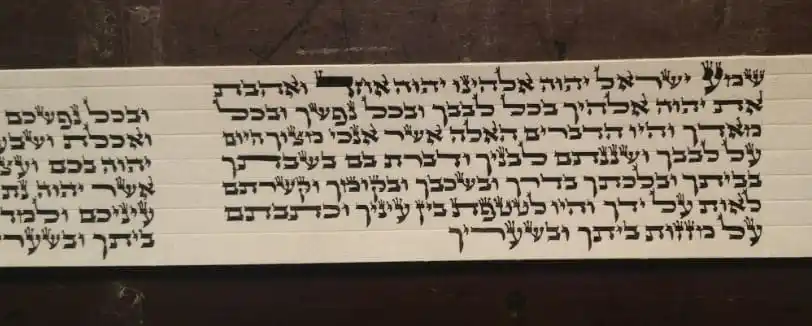 שמע ישראל יהוה אלהינו יהוה אחד ואהבת
את יהוה אלהיך בכל לבבך ובכל נפשך ובכל
מאדך והיו הדברים האלה אשר אנכי מצוך היום
על לבבך ושננתם לבניך ודברת בם בשבתך
בביתך ובלכתך בדרך ובשכבך ובקומך וקשרתם
לאות על ידך והיו לטטפת בין עיניך וכתבתם
על מזזות ביתך ובשעריך
ובכל נפשכם
ואכלת ושבע
יהוה בכם ועצ
אשר יהוה נת
עיניכם ולמד
ביתך ובשערי